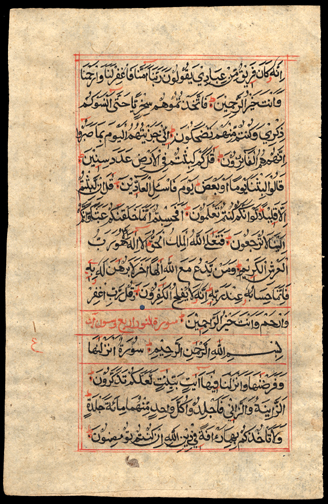 اِنَّهُ كَانَ فَرِيقٌ مِنْ عِبَادِي يَقُولُونَ رَبَّنَا اٰمَنَّا فَاغْفِرْ لَنَا وَارْحَمْنَا
وَاَنْتَ خَيْرُ الرّٰحِمِينَ فَاتَّخَذْتُمُوهُمْ سِخْرِيًّا حَتّٰى اَنْسَوْكُمْ
ذِكْرِي وَكُنْتُمْ مِنْهُمْ تَضْحَكُونَ اِنِّي جَزَيْتُهُمُ الْيَوْمَ بِمَا صَبَرُوا
اَنَّهُمْ هُمُ الْفَائِزُونَ قٰلَ كَمْ لَبِثْتُمْ فِي الْاَرْضِ عَدَدَ سِنِينَ
قَالُوا لَبِثْنَا يَوْمًا اَوْ بَعْضَ يَوْمٍ فَاسْئَلِ الْعَادِّينَ قٰلَ اِنْ لَبِثْتُمْ
اِلَّا قَلِيلًا لَوْ اَنَّكُمْ كُنْتُمْ تَعْلَمُونَ اَفَحَسِبْتُمْ اَنَّمَا خَلَقْنٰكُمْ عَبَثًا وَاَنَّكُمْ
اِلَيْنَا لَا تُرْجَعُونَ فَتَعٰلَى اللّٰهُ الْمَلِكُ الْحَقُّ لَا اِلٰهَ اِلَّا هُوَ رَبُّ
الْعَرْشِ الْكَرِيمِ وَمَنْ يَدْعُ مَعَ اللّٰهِ اِلٰهًا اٰخَرَ لَا بُرْهَانَ لَهُ بِهِ
فَاِنَّمَا حِسَابُهُ عِنْدَ رَبِّهِ اِنَّهُ لَا يُفْلِحُ الْكٰفِرُونَ وَقُلْ رَبِّ اغْفِرْ
وَارْحَمْ وَاَنْتَ خَيْرُ الرّٰحِمِينَ سورة النور اربع وستون اية
بِسْمِ اللّٰهِ الرَّحْمٰنِ الرَّحِيمِ سُورَةٌ اَنْزَلْنٰهَا
وَفَرَضْنٰهَا وَاَنْزَلْنَا فِيهَا اٰيٰتٍ بَيِّنٰتٍ لَعَلَّكُمْ تَذَكَّرُونَ
اَلزَّانِيَةُ وَالزَّانِي فَاجْلِدُوا كُلَّ وَاحِدٍ مِنْهُمَا مِائَةَ جَلْدَةٍ
وَلَا تَاْخُذْكُمْ بِهِمَا رَاْفَةٌ فِي دِينِ اللّٰهِ اِنْ كُنْتُمْ تُؤْمِنُونَ